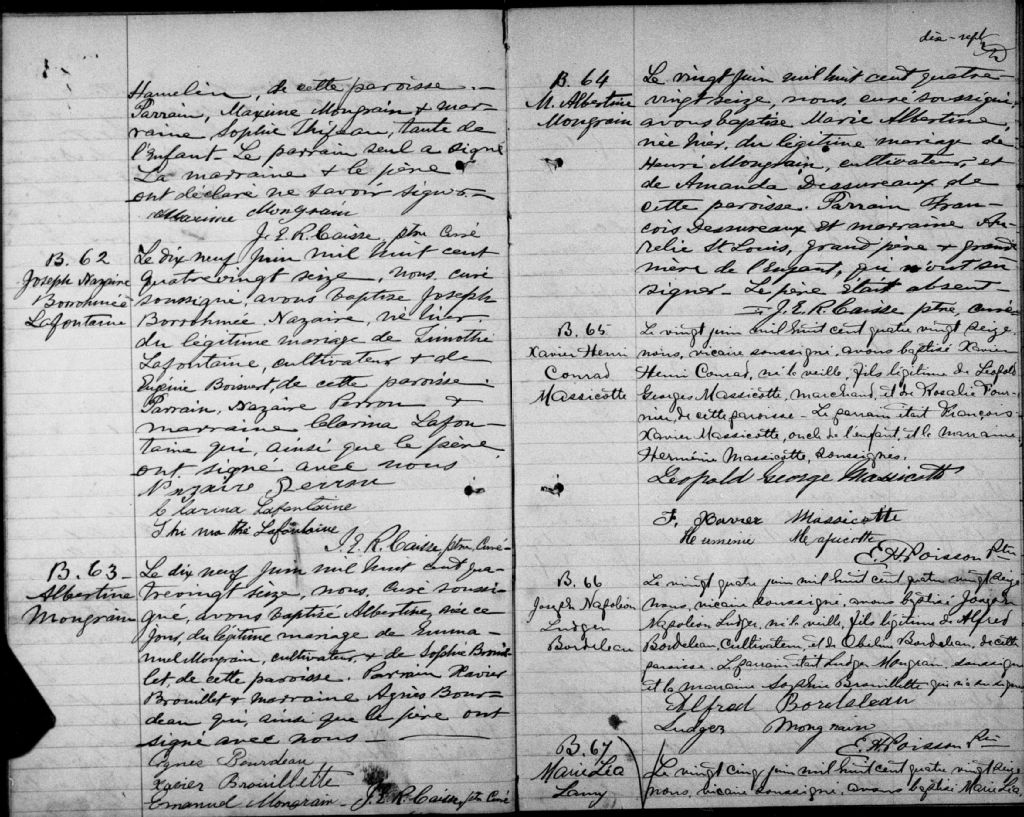 Hamelin, de cette paroisse.—
Parrain, Maxime Mongrain & mar-
raine Sophie Thifeau, tante de
l'Enfant — Le parrain seul a signé
La marraine & le père
ont déclaré ne savoir signer.—
Maxime Mongrain
J. E. R. Caisse, ptre Curé
B. 62
Joseph Nazaire
Borrohmée
Lafontaine
Le dix neuf juin mil huit cent
quatrevingt seize, nous, curé
soussigné, avons baptisé Joseph
Borrohmée Nazaire, né hier,
du légitime mariage de Timothé
Lafontaine, cultivateur & de
Eugénie Boisvert, de cette paroisse.
Parrain, Nazaire Perron &
marraine Clarina Lafon-
taine qui, ainsi que le père
ont signé avec nous
Nazaire Perron
Clarina Lafontaine
Thi mo thé Lafontaine
J. E. R. Caisse, ptre, Curé—
B. 63—
Albertine
Mongrain
Le dix neuf juin mil huit cent qua-
trevingt seize, nous, curé soussi-
gné, avons baptisé Albertine, née ce
jour, du légitime mariage de Emma-
nuel Mongrain, cultivateur, & de Sophie Brouil-
let de cette paroisse. Parrain Xavier
Brouillet & marraine Agnès Bour-
deau qui, ainsi que le père ont
signé avec nous —
Agnes Bourdeau
Xavier Brouillette
Emanuel Mongrain — J. E. R. Caisse, ptre Curé
dix-sept
B. 64
M. Albertine
Mongrain
Le vingt juin mil huit cent quatre-
vingt seize, nous, curé soussigné,
avons baptisé Marie Albertine,
née hier, du légitime mariage de
Henri Mongrain, cultivateur, et
de Amanda Dessureaux de
cette paroisse. Parrain Fran-
cois Dessureaux et marraine Au-
relie St Louis, grand père & grand
mère de l'Enfant, qui n'ont su
signer — Le père était absent —
J. E. R. Caisse ptre, curé
B. 65
Xavier Henri
Conrad
Massicotte
Le vingt juin mil huit cent quatre vingt seize,
nous, vicaire soussigné, avons baptisé Xavier
Henri Conrad, né la veille, fils légitime de Léopold
Georges Massicotte, marchand, et de Rosalie Four-
nier, de cette paroisse — Le parrain était François-
Xavier Massicotte, oncle de l'enfant, et la marraine,
Herménie Massicotte, soussignés.
Leopold George Massicotte
F. Xavier Massicotte
Hermenie Massicotte
E. H. Poisson Ptre
B. 66
Joseph Napoléon
Ludger
Bordeleau
Le vingt quatre juin mil huit cent quatre vingt seize
nous, vicaire soussigné, avons baptisé Joseph
Napoléon Ludger, né la veille, fils légitime de Alfred
Bordeleau, cultivateur, et de Bordeleau, de cette
paroisse. Le parrain était Ludger Mongrain, soussigné
et la marraine Sophie Brouillette qui n'a su signer
Alfred Bordeleau
Ludger Mongrain
E. H. Poisson Ptre
B. 67
Marie Léa
Lamy
Le vingt cinq juin mil huit cent quatre vingt seize
nous, vicaire soussigné, avons baptisé Marie Léa,